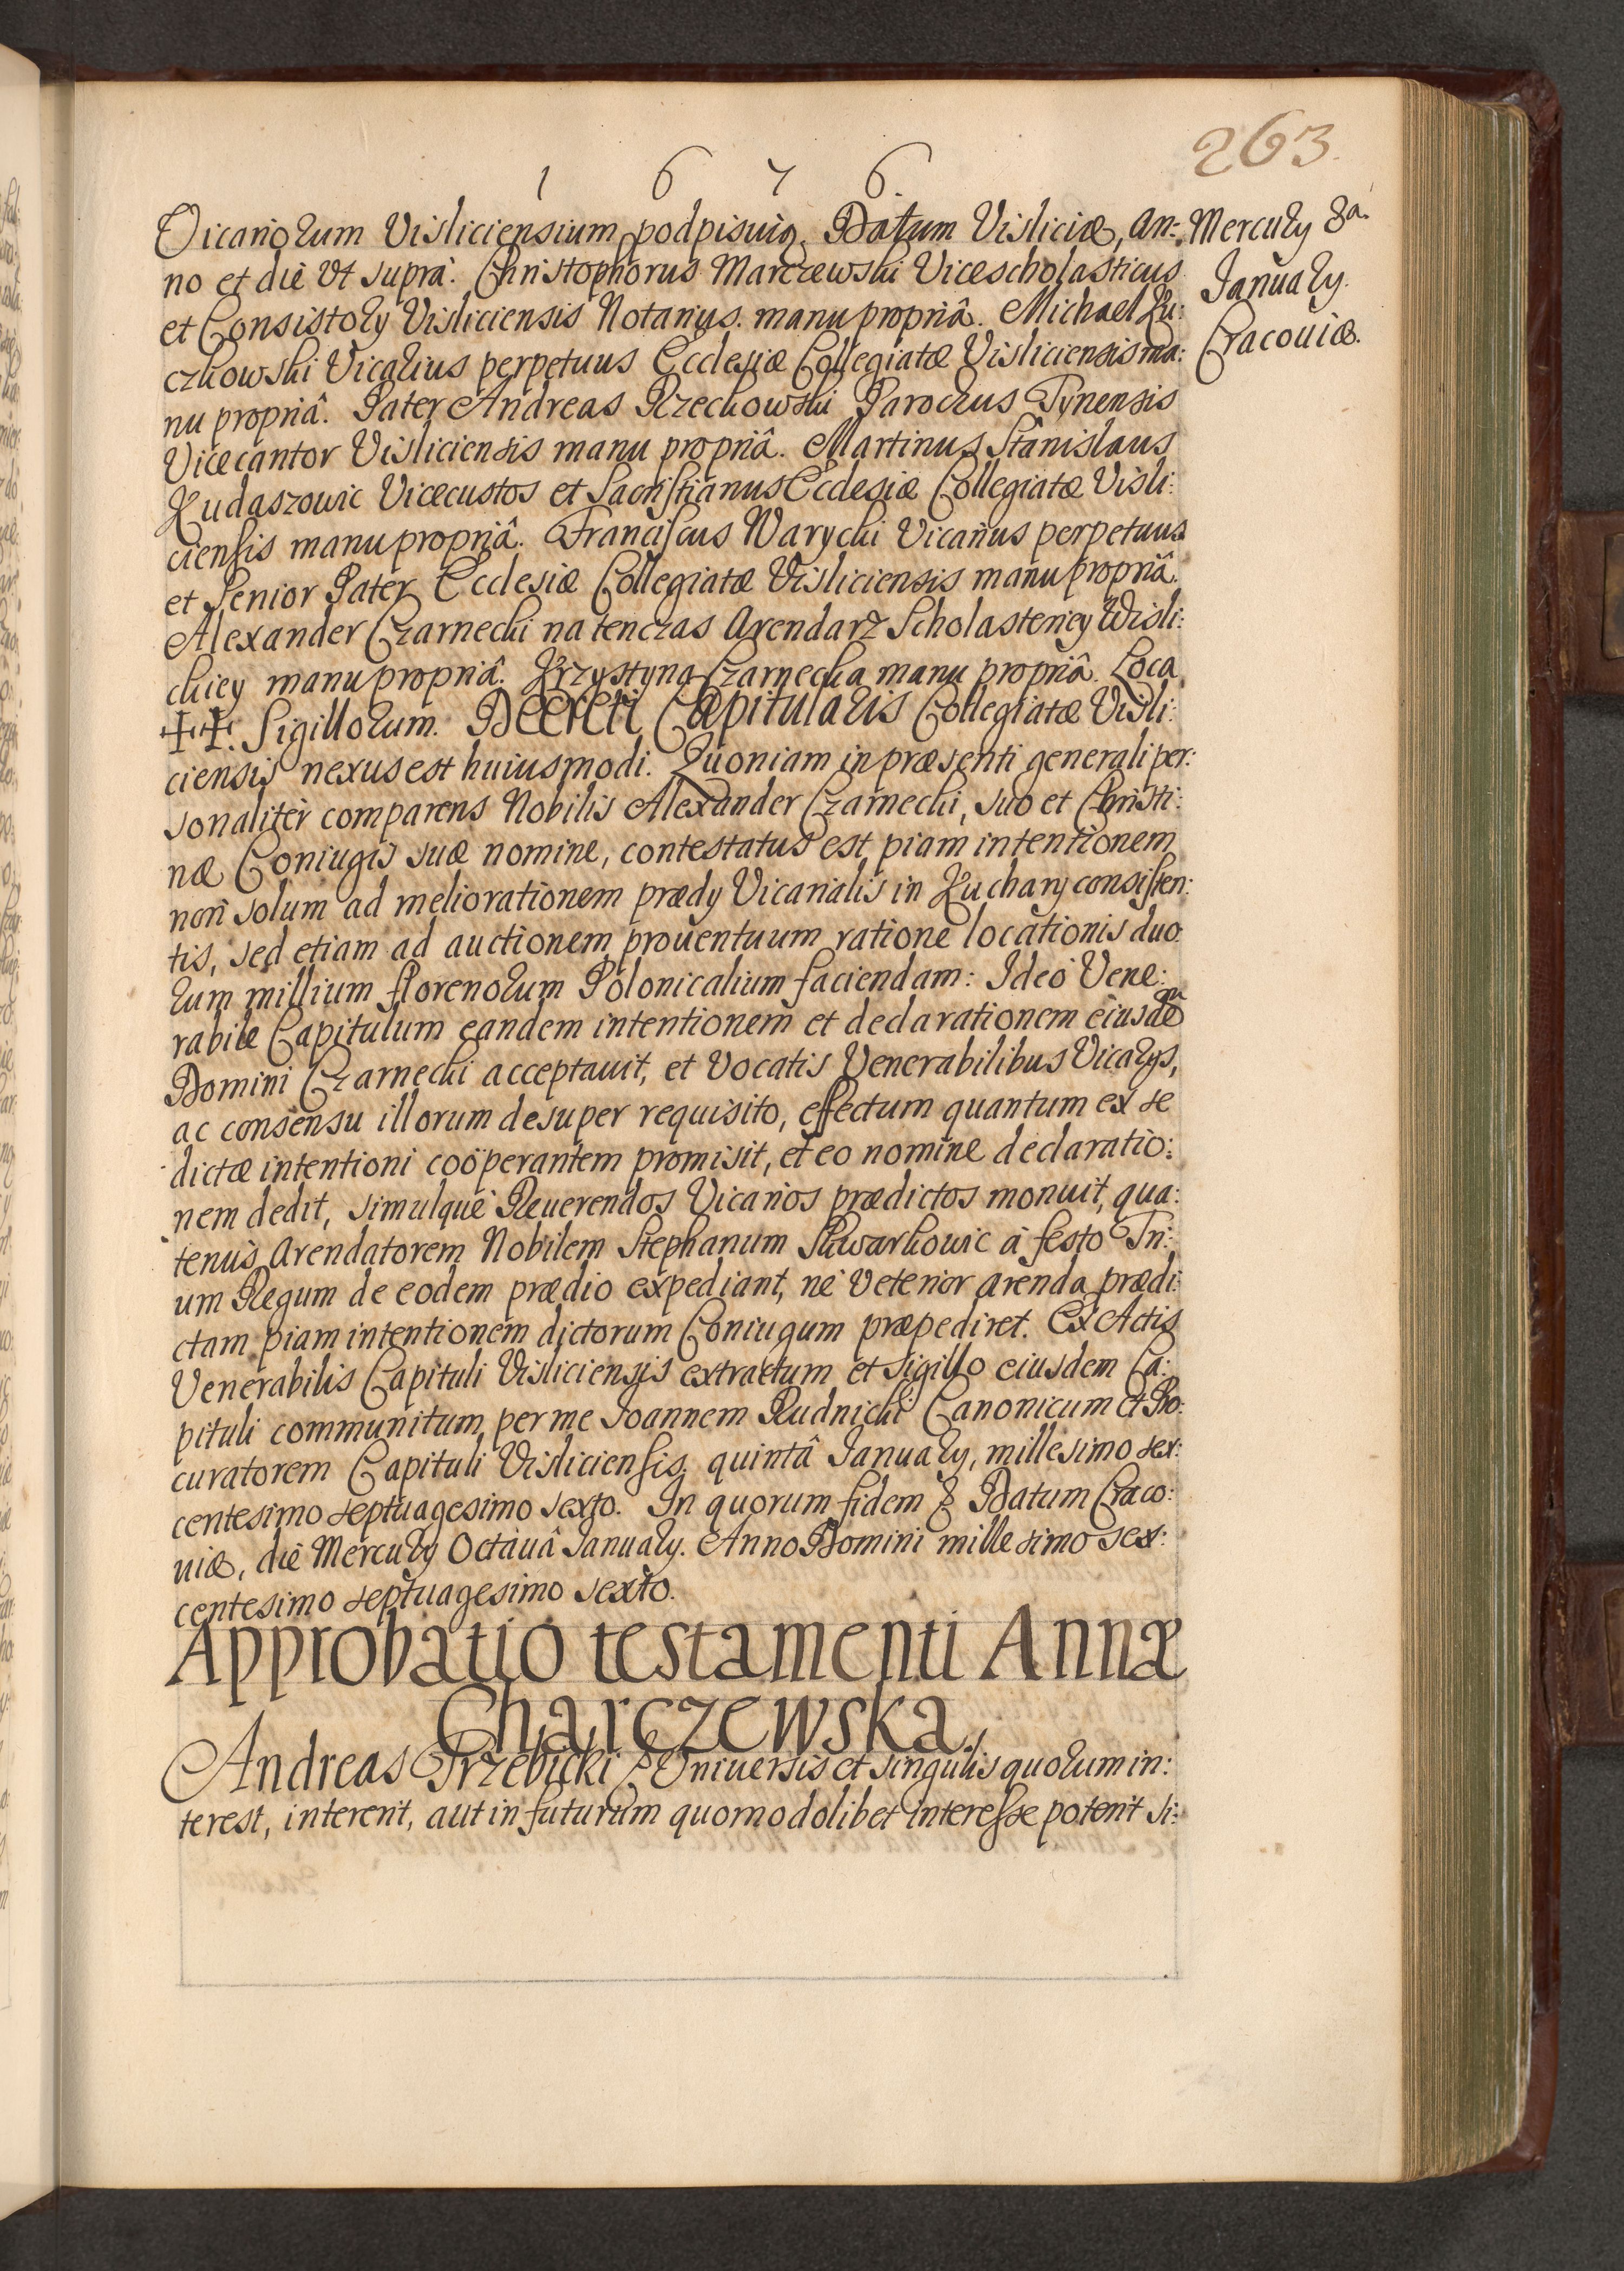 263.
1 6 7 6.
Vicariorum Visliciensium podpisuią. Datum Visliciæ, An:
no et die Vt suprà. Christophorus Marczewski Vicescholasticus
et Consistorÿ Visliciensis Notarius. manu propriâ. Michael Ku:
czkowski Vicarius perpetuus Ecclesiæ Collegiatæ Visliciensis ma:
nu propriâ. Pater Andreas Rzechowski Parochus Tynensis
Vicecantor Visliciensis manu propriâ. Martinus Stanislaus
Kudaszowic Vicecustos et Sacristianus Ecclesiæ Collegiatæ Visli:
ciensis manu propriâ. Franciscus Warycki Vicarius perpetuus
et Senior Pater Ecclesiæ Collegiatæ Visliciensis manu propriâ.
Alexander Czarnecki na tenczas Arendarz Scholasteriey Wisli:
ckiey manu propriâ. Krzystyna Czarnecka manu propriâ. Loca
‡‡. Sigillorum. Decreti Capitularis Collegiatæ Visli:
ciensis nexus est huiusmodi. Quoniam in præsenti generali per:
sonaliter comparens Nobilis Alexander Czarnecki, suo et Christi:
næ Coniugis suæ nomine, contestatus est piam intentionem
non solum ad meliorationem prædÿ Vicarialis in Kuchary consisten:
tis, sed etiam ad auctionem prouentuum ratione locationis duo
rum millium florenorum Polonicalium faciendam: Ideo Vene:
rabile Capitulum eandem intentionem et declarationem eiusdē
Domini Czarnecki acceptauit, et Vocatis Venerabilibus Vicarÿs,
ac consensu illorum desuper requisito, effectum quantum ex se
dictæ intentioni coöperantem promisit, et eo nomine declaratio:
nem dedit, simulque Reuerendos Vicarios prædictos monuit, qua:
tenus Arendatorem Nobilem Stephanum Skwarkowic à festo Tri:
um Regum de eodem prædio expediant, ne Veterior arenda prædi:
ctam piam intentionem dictorum Coniugum præpediret. Ex Actis
Venerabilis Capituli Visliciensis extractum et sigillo eiusdem Ca:
pituli communitum per me Joannem Rudnicki Canonicum et Pro:
curatorem Capituli Visliciensis quintâ Januarÿ, millesimo sex:
centesimo septuagesimo sexto. In quorum fidem & Datum Craco:
uiæ, die Mercurÿ Octauâ Januarÿ. Anno Domini millesimo sex:
centesimo septuagesimo sexto.
Approbatio testamenti Annæ
Charczewska.
Andreas Trzebicki & Vniuersis et singulis quorum in:
terest, intererit, aut in futurum quomodolibet interesse poterit si:
Mercurÿ 8a.
Januarÿ.
Cracouiæ.